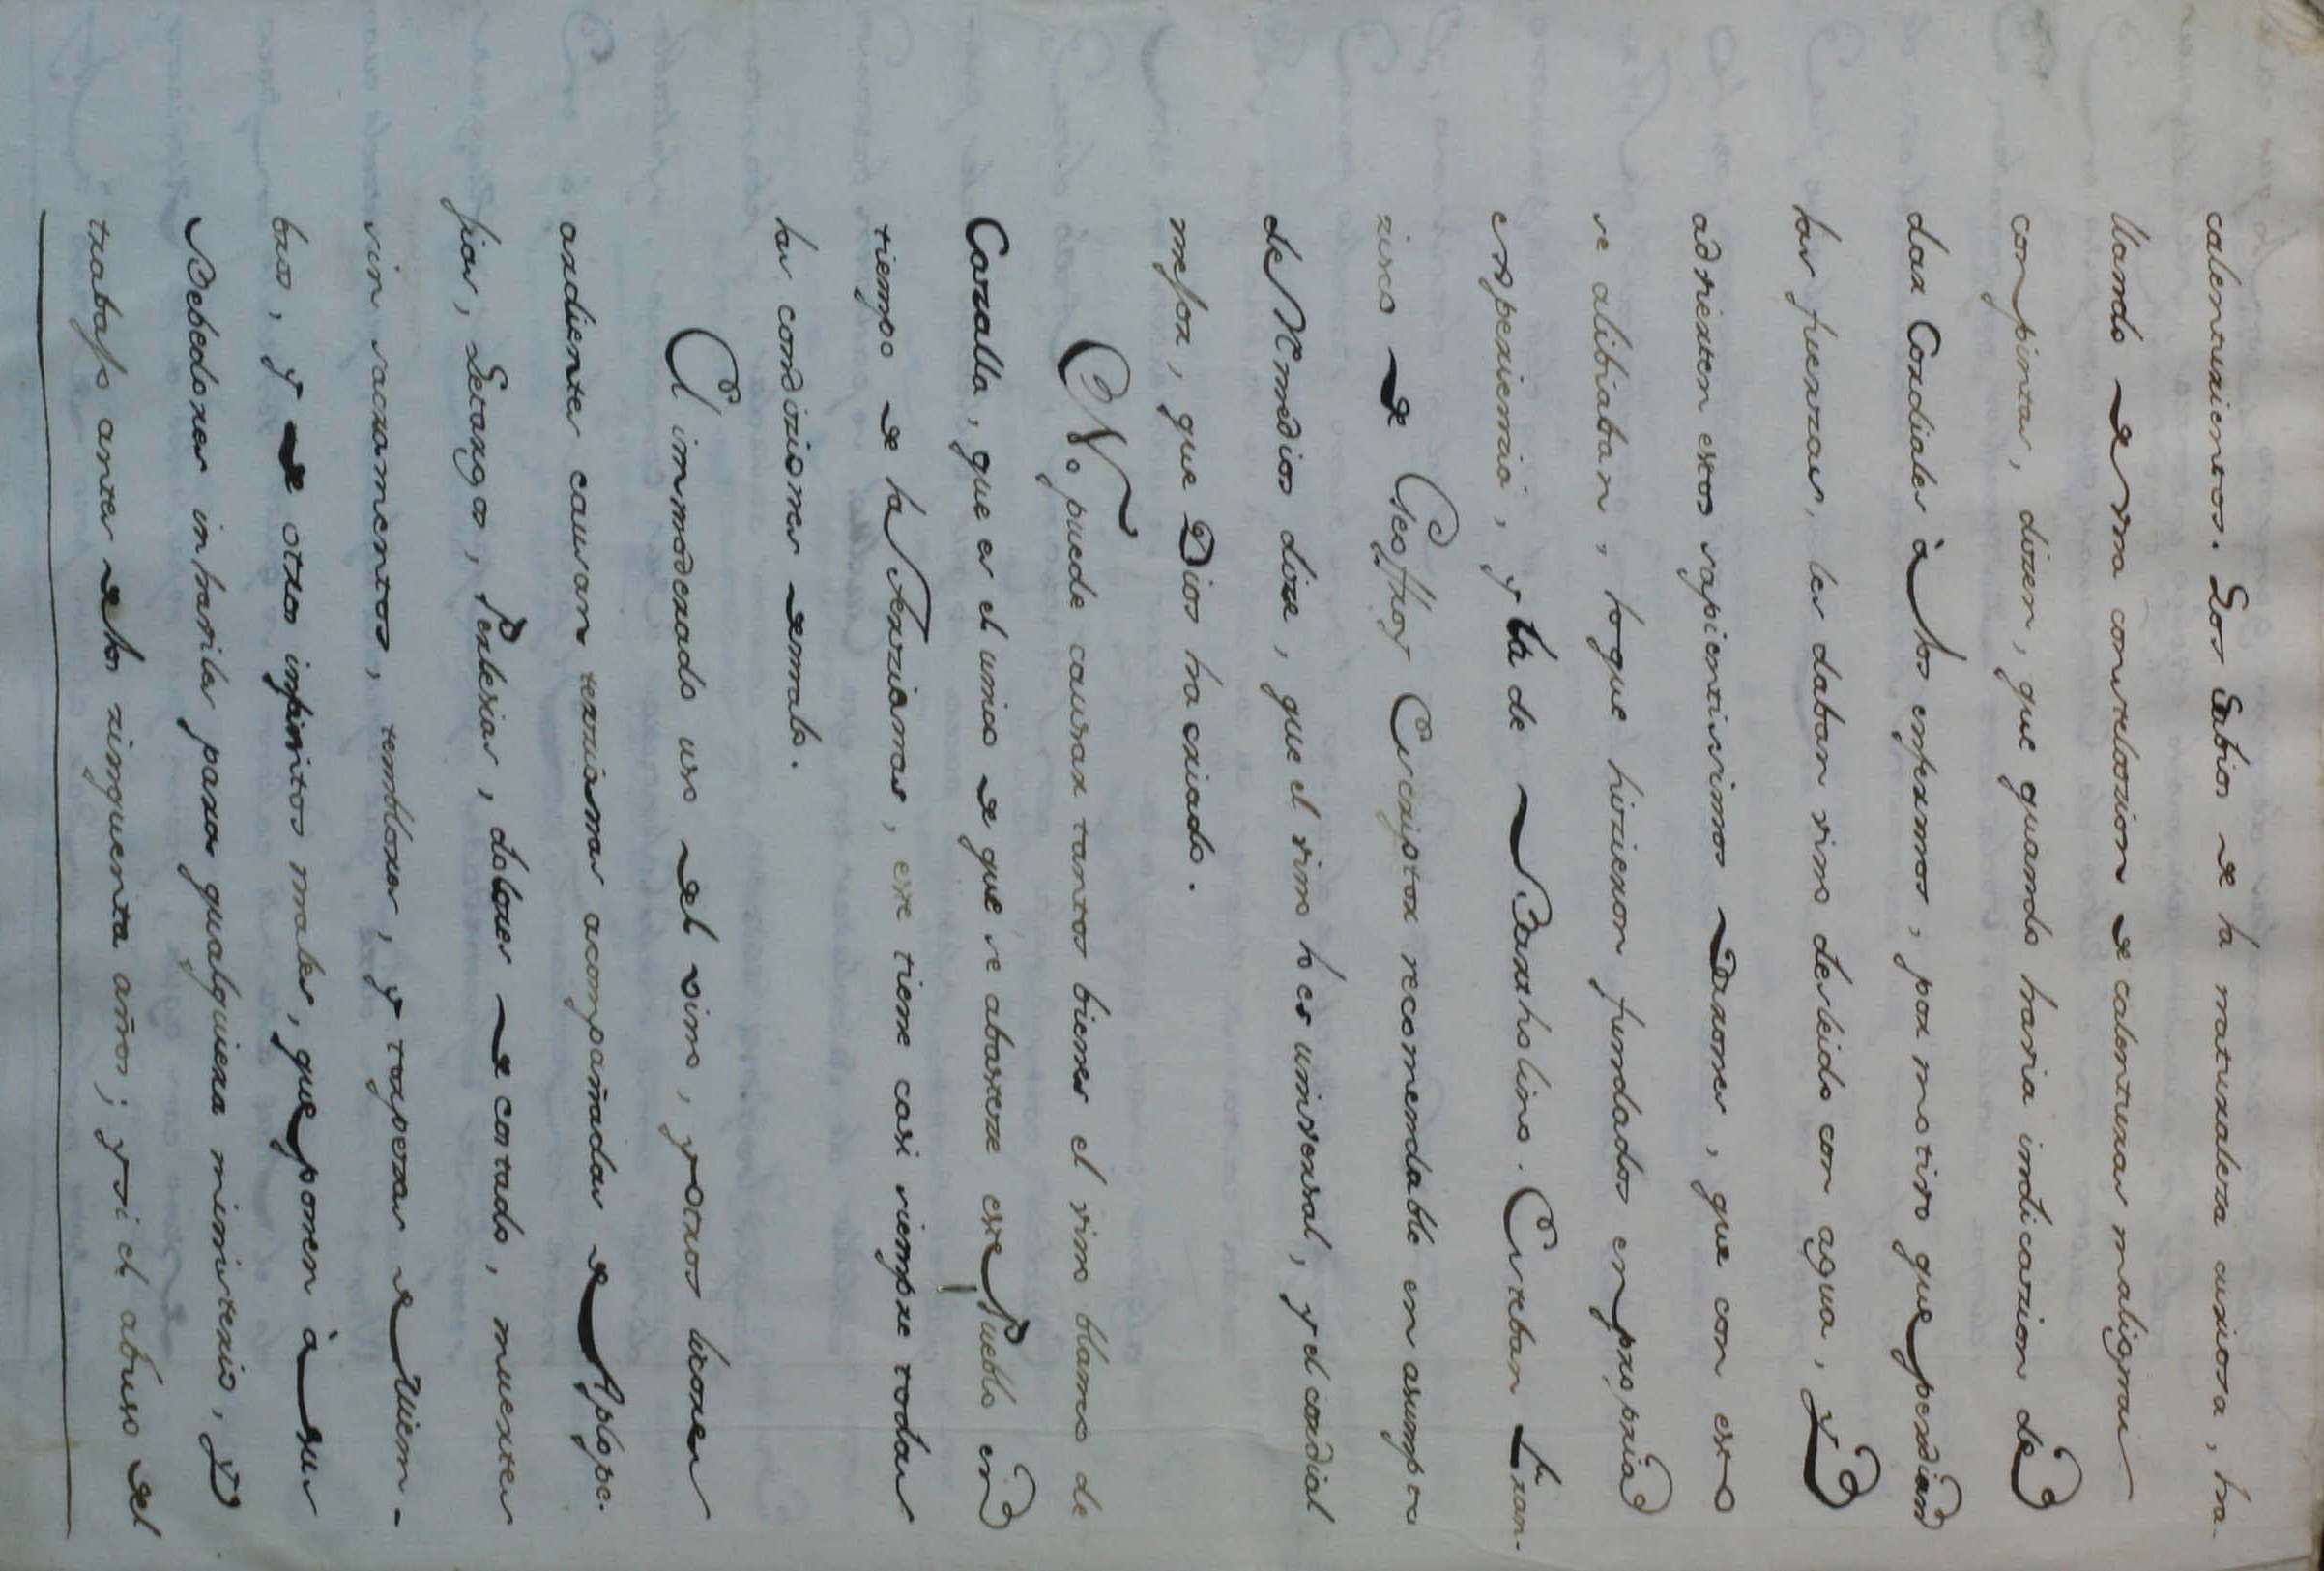 calenturientos. Los Sabios de la naturaleza ansiosa, ha-
llando de una constelozion de calenturas malignas
con pintas, dizen, que quando havia indicazion de
dar Cordiales à los enfermos, por motivo que perdian
las fuerzas, les daban vino desleido con agua, y
advierten estos sapientisimos Varones, que con esto
se alibiaban, lo que hizieron fundados en propria
experiencia, y la de Bartholino. Esteban Fran-
zisco de Geoffroy Escriptor recomendable en asumpto
de Remedios dize, que el vino lo es universal, y el cordial
mejor, que Dios ha criado.
No puede causar tantos bienes el vino blanco de
Cazalla, que es el unico de que se abasteze este Pueblo en
tiempo de las Terzianas, este tiene casi siempre todas
las condiziones de malo.
El immoderado uso del vino, y otros licores
ardientes causan terzianas acompañadas de Aplope-
jias, Letargos, Perlesias, dolores de costado, muertes
sin sacramentos, temblores, y torpezas de Miem-
bros, y de otros infinitos males, que ponen à sus
Bebedores inhaviles para qualquiera ministerio, y
trabajo antes de los zinquenta años; y si el abuso del